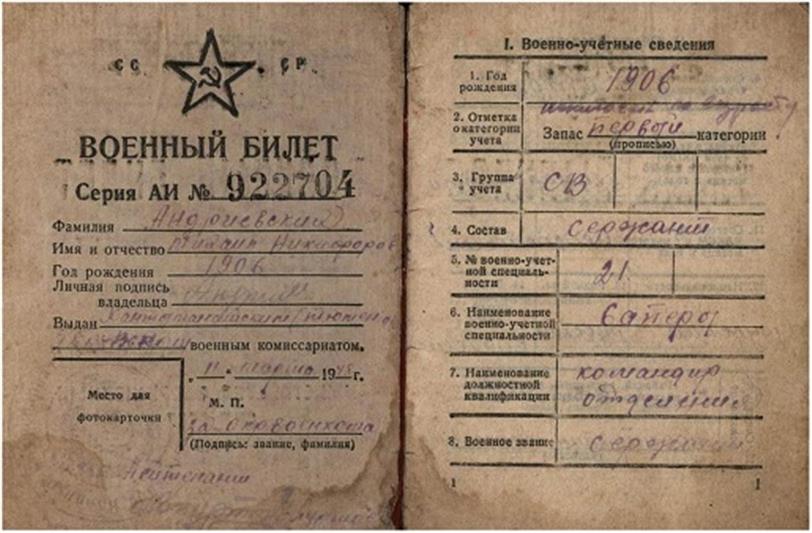 СС СР
ВОЕННЫЙ БИЛЕТ
Серия АИ № 922704
Фамилия Андриевский
Имя и отчество Михаил Никифоров
Год рождения 1906
Личная подпись
владельца
Выдан
военным комиссариатом.
„11“ марта 19 г.
Место для
фотокарточки
М. П.
(Подпись: звание, фамилия)
Лейтенант
I. Военно-учетные сведения
1. Год
рождения
1906
2. Отметка
о категории
учета
по возрасту
Запас первой категории
(прописью)
3. Группа
учета
СВ
4. Состав
сержант
5. № военно-учет-
ной специаль-
ности
21
6. Наименование
военно-учетной
специальности
Саперы
7. Наименование
должностной
квалификации
командир
отделения
8. Военное звание
сержант
1
1